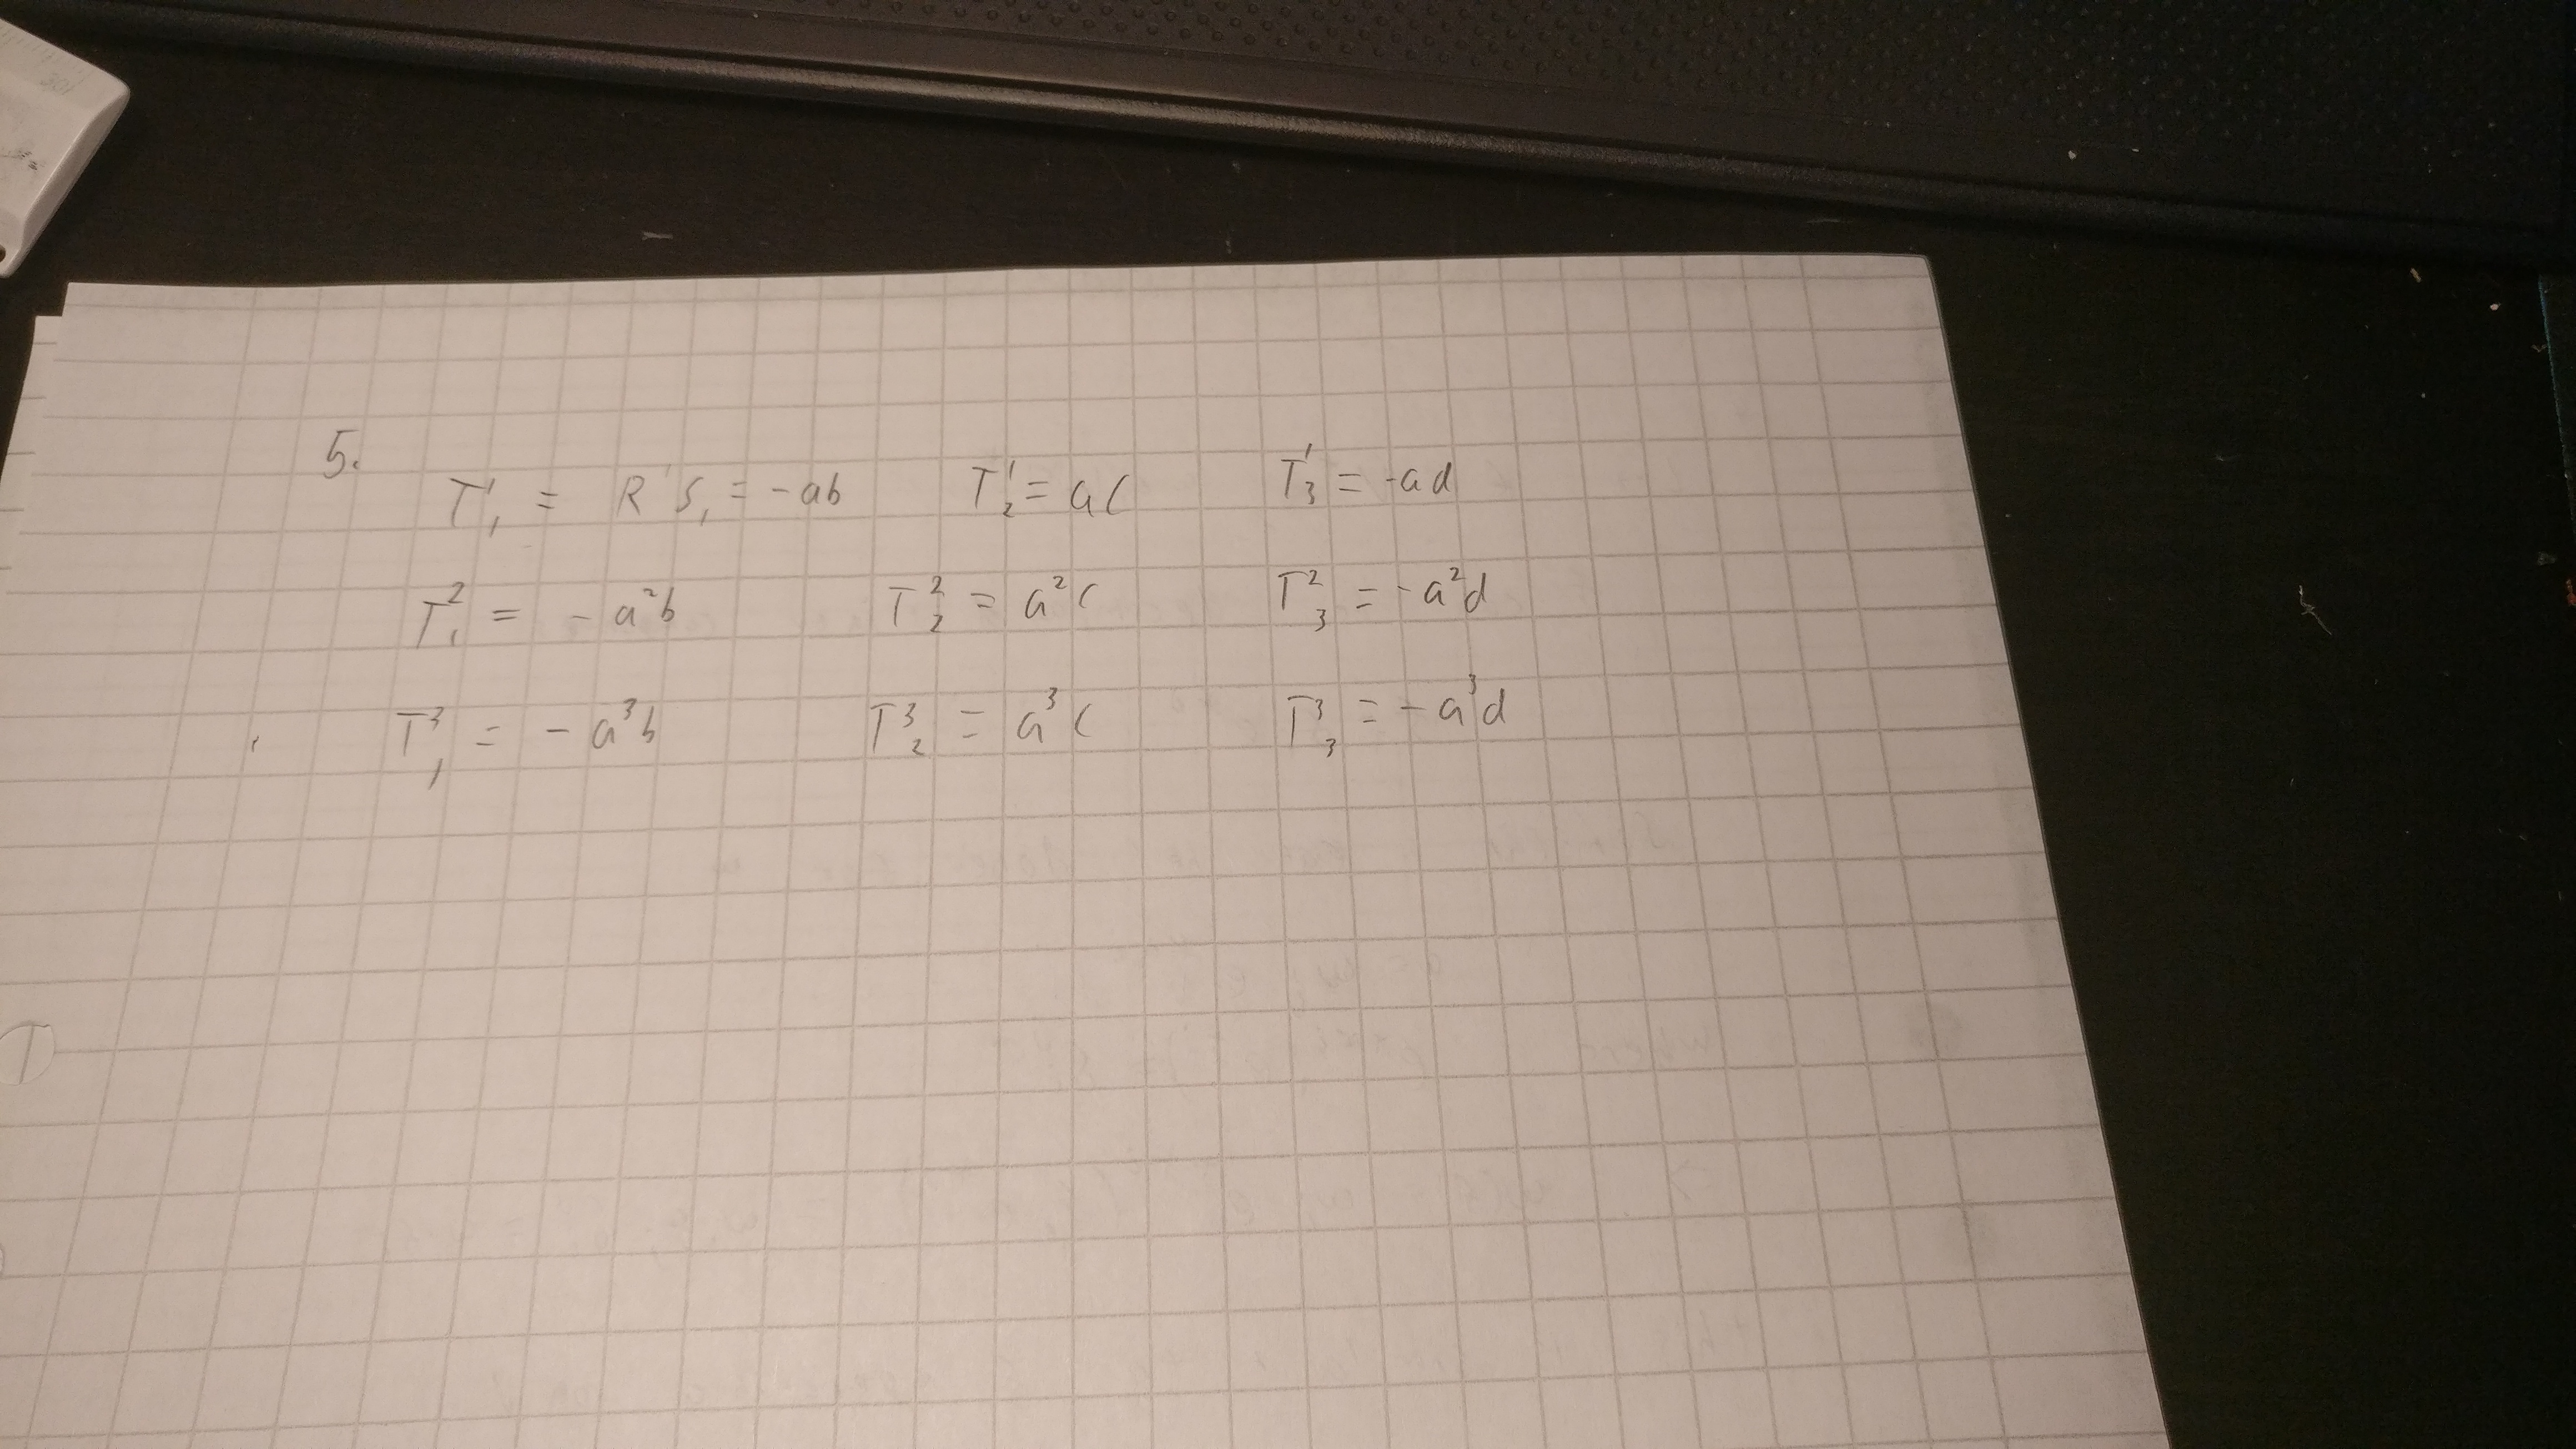 5.
T¹₁ = R¹S₁ = -ab T¹₂ = ac T¹₃ = -ad
T²₁ = -a²b T²₂ = a²c T²₃ = -a²d
T³₁ = -a³b T³₂ = a³c T³₃ = -a³d